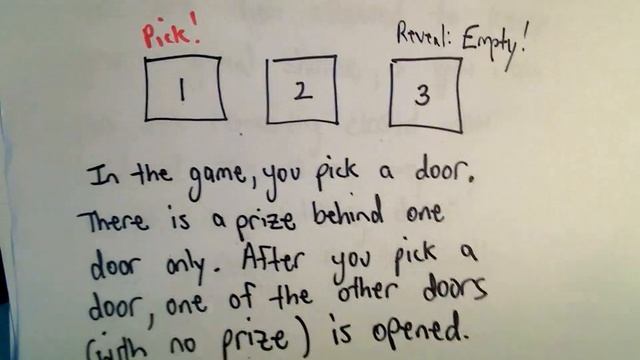 Pick!
Reveal: Empty!
1 2 3
In the game, you pick a door.
There is a prize behind one
door only. After you pick a
door, one of the other doors
(with no prize) is opened.